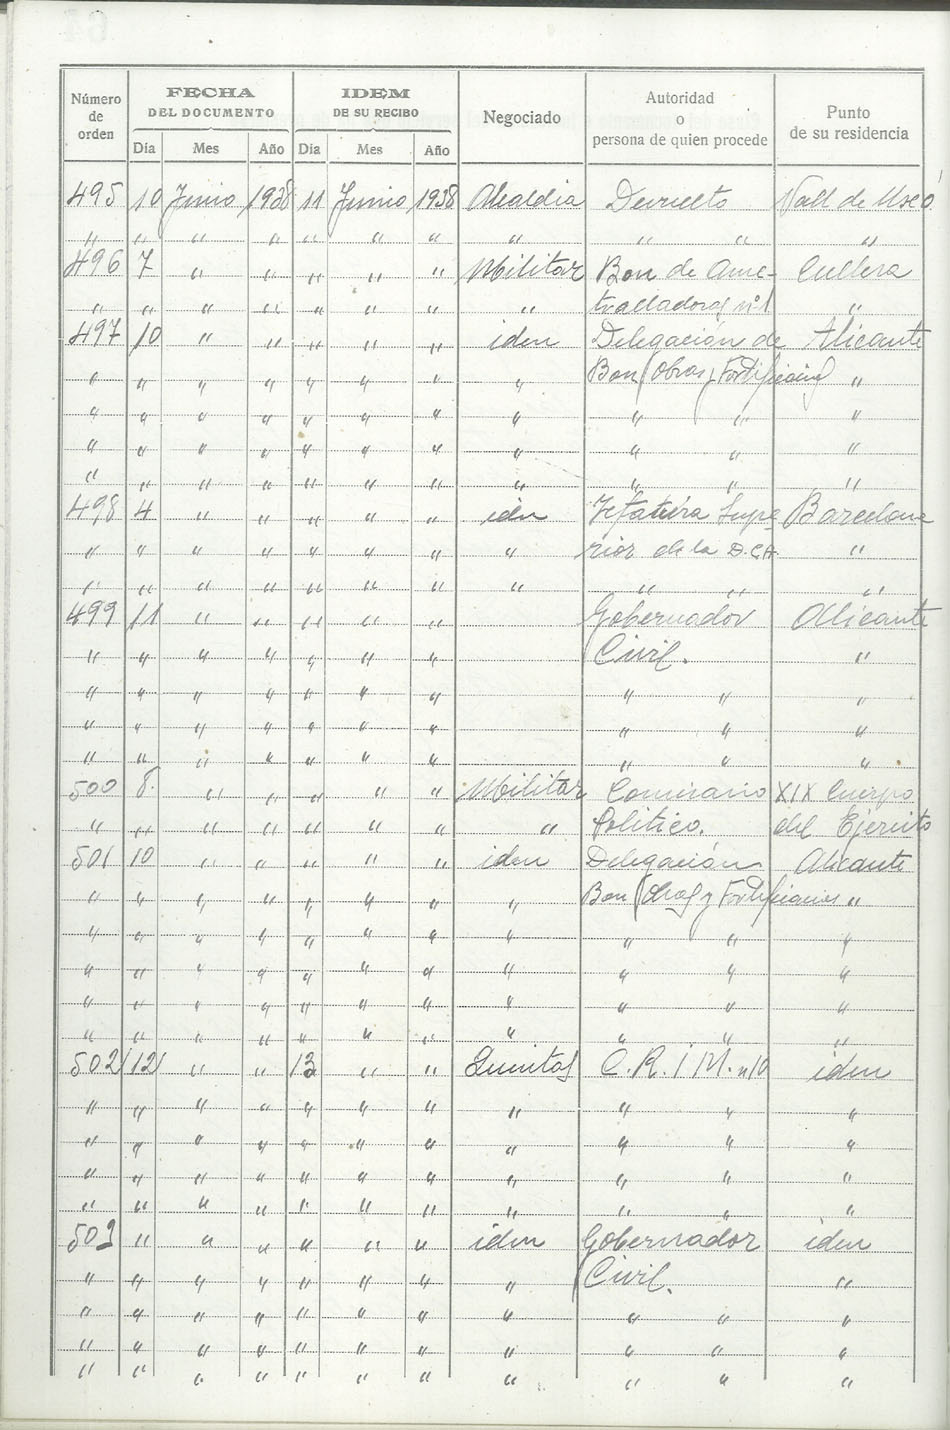 Número de orden | FECHA DEL DOCUMENTO | IDEM DE SU RECIBO | Negociado | Autoridad o persona de quien procede | Punto de su residencia
Día | Mes | Año | Día | Mes | Año
495 | 10 | Junio | 1938 | 11 | Junio | 1938 | Alcaldia | | Vall de Uxó
" | " | " | " | " | " | " | " | " " | "
496 | 7 | " | " | " | " | " | Militar | Bon de Ame- | Cullera
" | " | " | " | " | " | " | " | tralladoras nº 1 | "
497 | 10 | " | " | " | " | " | iden | Delegación de | Alicante
" | " | " | " | " | " | " | " | Bon Obras y | "
" | " | " | " | " | " | " | " | " " | "
" | " | " | " | " | " | " | " | " " | "
" | " | " | " | " | " | " | " | " " | "
498 | 4 | " | " | " | " | " | iden | Jefatura Supe | Barcelona
" | " | " | " | " | " | " | " | rior de la D.C.A. | "
" | " | " | " | " | " | " | " | " " | "
499 | 11 | " | " | " | " | " | | Gobernador | Alicante
" | " | " | " | " | " | " | | Civil. | "
" | " | " | " | " | " | " | | " " | "
" | " | " | " | " | " | " | | " " | "
" | " | " | " | " | " | " | | " " | "
500 | 8. | " | " | " | " | " | Militar | Comisario | XIX Cuerpo
" | " | " | " | " | " | " | " | Politico. | del Ejército
501 | 10 | " | " | " | " | " | iden | Delegación | Alicante
" | " | " | " | " | " | " | " | Bon Obras y | "
" | " | " | " | " | " | " | " | " " | "
" | " | " | " | " | " | " | " | " " | "
" | " | " | " | " | " | " | " | " " | "
" | " | " | " | " | " | " | " | " " | "
502 | 12 | " | " | 13 | " | " | Quintas | C.R.I.M. nº 10 | iden
" | " | " | " | " | " | " | " | " " | "
" | " | " | " | " | " | " | " | " " | "
" | " | " | " | " | " | " | " | " " | "
" | " | " | " | " | " | " | " | " " | "
503 | " | " | " | " | " | " | iden | Gobernador | iden
" | " | " | " | " | " | " | " | Civil. | "
" | " | " | " | " | " | " | " | " " | "
" | " | " | " | " | " | " | " | " " | "
" | " | " | " | " | " | " | " | " " | "